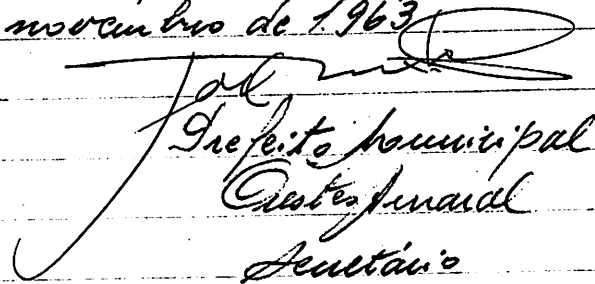 novembro de 1.963
Prefeito Municipal
Orestes Amaral
Secretário